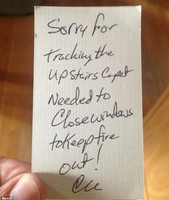 Sorry for
Tracking the
upstairs Carpet
Needed to
Close windows
to Keep fire
out!